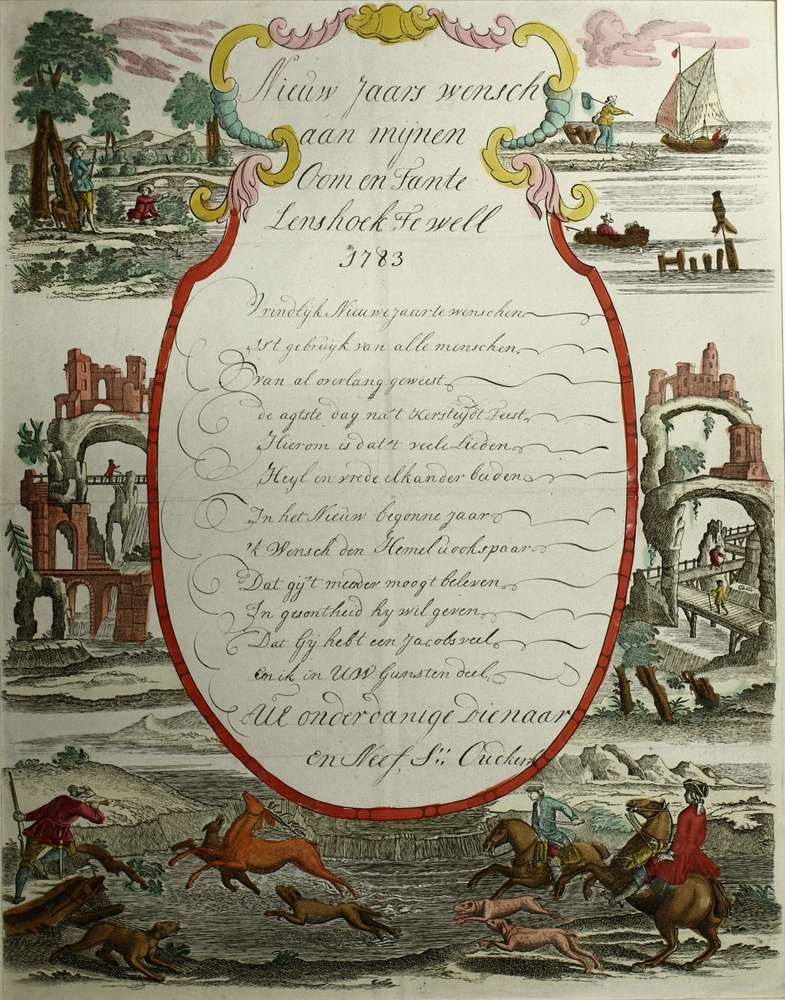 Nieuw Jaars wensch
aan mijnen
Oom en Tante
Lenshoek Te well
1783
Vrindlijk Nieuwe jaar te wenschen
Ist gebruijk van alle menschen
van al overlang geweest
de agtste dag na't kerstijdt Feest
Hierom is dat't veele Lieden
Heyl en vrede elkander beiden
In het Nieuw begonne jaar
'k Wensch den Hemel u ook spaar
Dat gij't meeder moogt beleven
In gesontheid hy wil geven
Dat Gij hebt een Jacobs veel
en ik in UW Gunsten deel
UE onderdanige Dienaar
En Neef S: